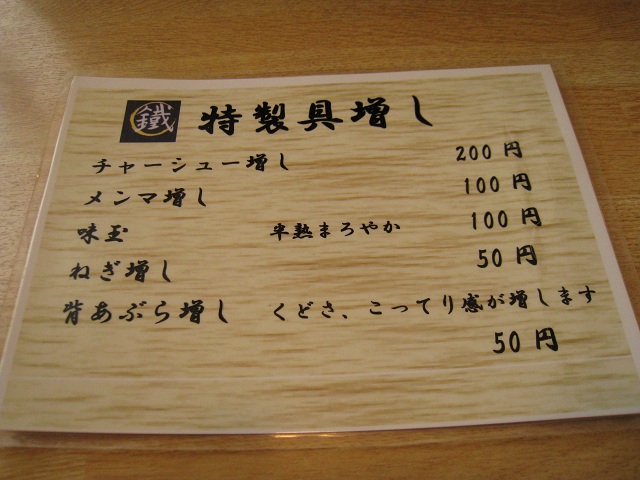 鐵 特製具増し
チャーシュー増し 200円
メンマ増し 100円
味玉 半熟まろやか 100円
ねぎ増し 50円
背あぶら増し くどさ、こってり感が増します
50円